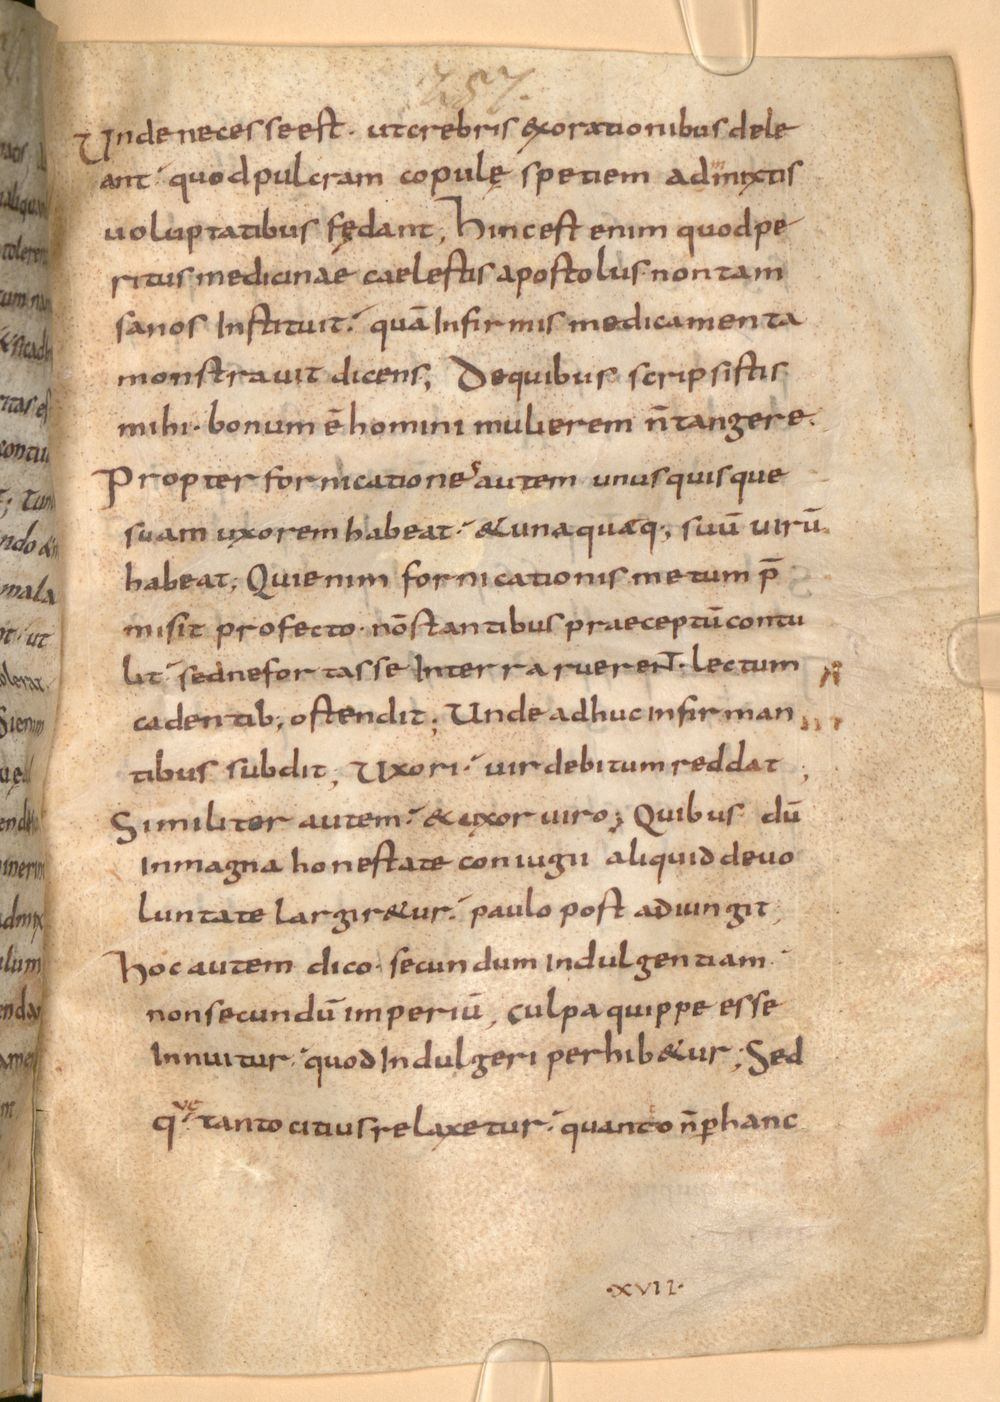 257.
Unde necesse est· ut crebris exorationibus dele
ant· quod pulcram copulę spetiem admixtis
m
voluptatibus fędant; Hinc est enim quod pe
ritus medicinae caelestis apostolus non tam
sanos Instituit· quā Infirmis medicamenta
monstravit dicens; De quibus scripsistis
mihi· bonum ē homini mulierem n̄ tangere·
Propter fornicationes autem unusquisque
suam uxorem habeat· & unaquæq; suū virū
habeat; Qui enim fornicationis metum p̄
misit profecto· nōstantibus praeceptū contu
lit· sed ne fortasse In terra ruerent· lectum
cadentib; ostendit; Unde adhuc infirman
tibus subdit; Uxori· vir debitum reddat;
Similiter autem· & uxor viro; Quibus dū
In magna honestate coniugii aliquid de vo
luntate largir&ur· paulo post adiungit;
hoc autem dico· secundum Indulgentiam·
non secundū imperiū; culpa quippe esse
Innuitur· quod Indulgeri perhib&ur; Sed
que· tanto citius relaxetur· quanto n̄ ꝑ hanc
·XVII·